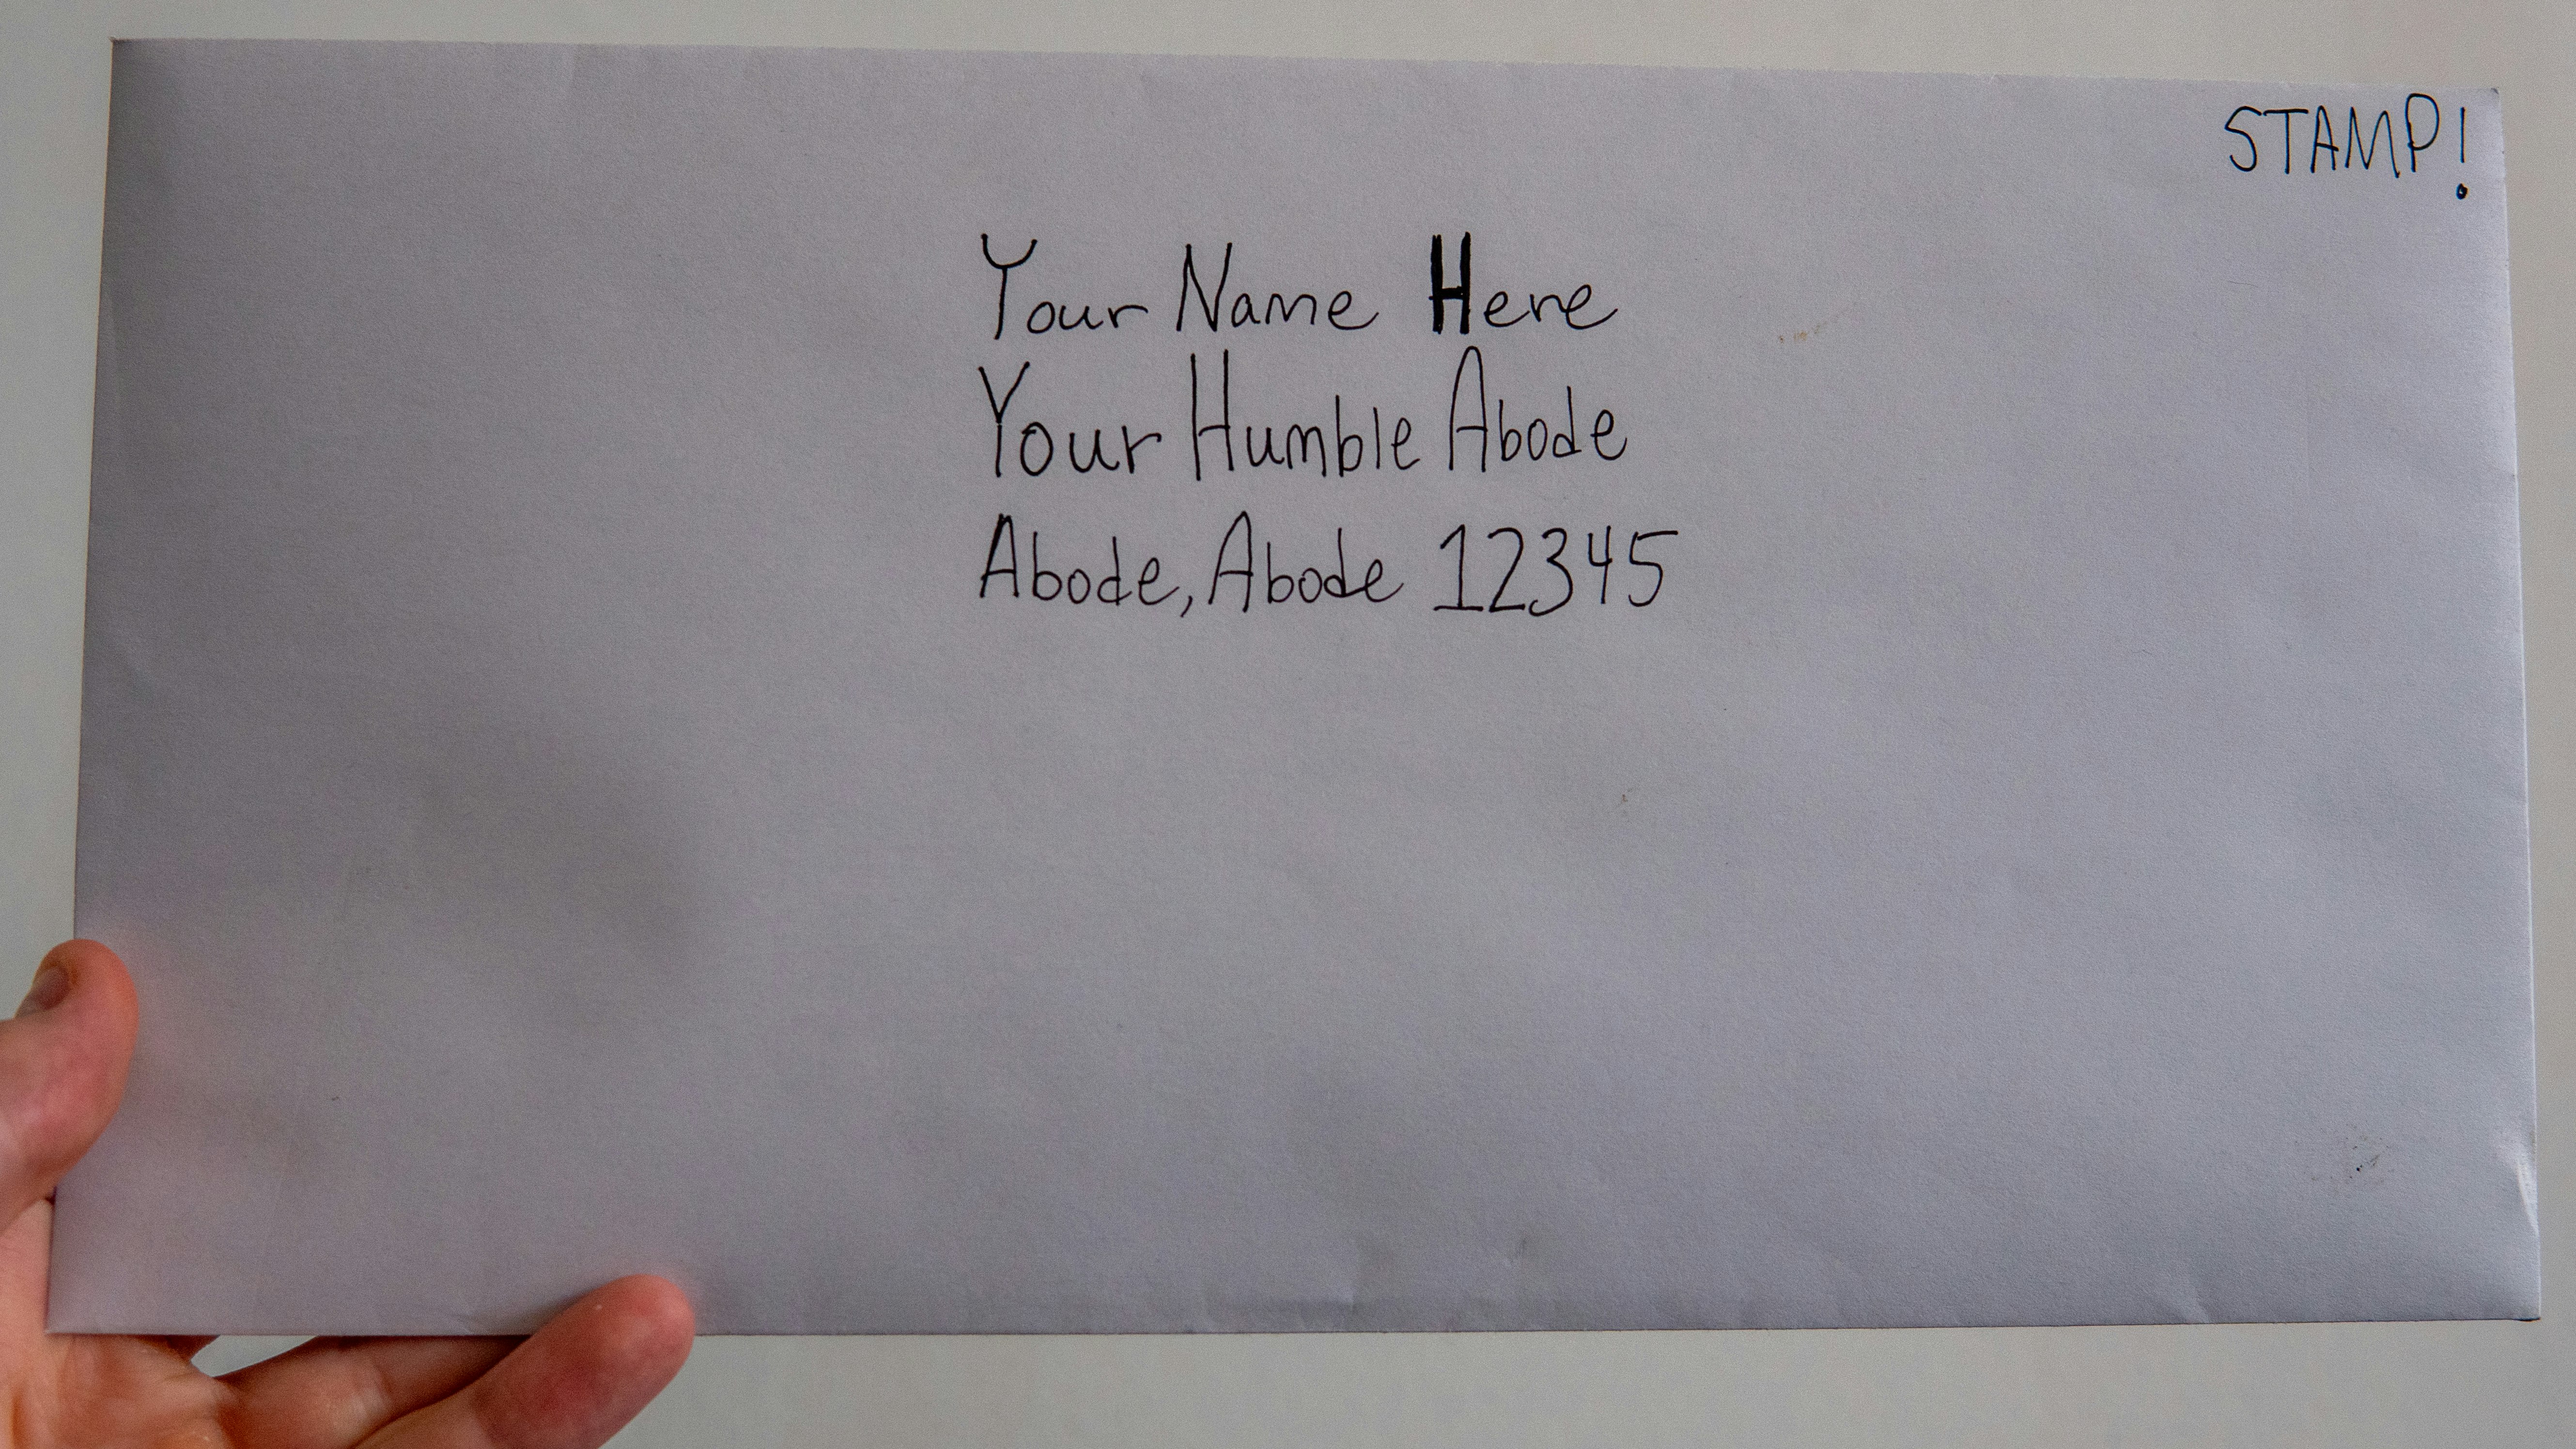 STAMP!
Your Name Here
Your Humble Abode
Abode, Abode 12345